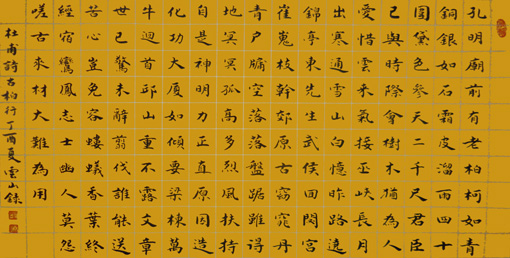 孔明廟前有老柏柯如青
銅根如石霜皮溜雨四十
圍黛色參天二千尺君臣
已與時際會樹木猶為人
愛惜雲來氣接巫峽長月
出寒通雪山白憶昨路遶
錦亭東先生武侯同閟宮
崔嵬枝幹郊原古窈窕丹
青戶牖空落落盤踞雖得
地冥冥孤高多烈風扶持
自是神明力正直原因造
化功大厦如傾要梁棟萬
牛迴首邱山重不露文章
世已驚未辭翦伐誰能送
苦心豈免容螻蟻香葉終
經宿鸞鳳志士幽人莫怨
嗟古來材大難為用
杜甫詩古柏行丁酉夏雲山錄